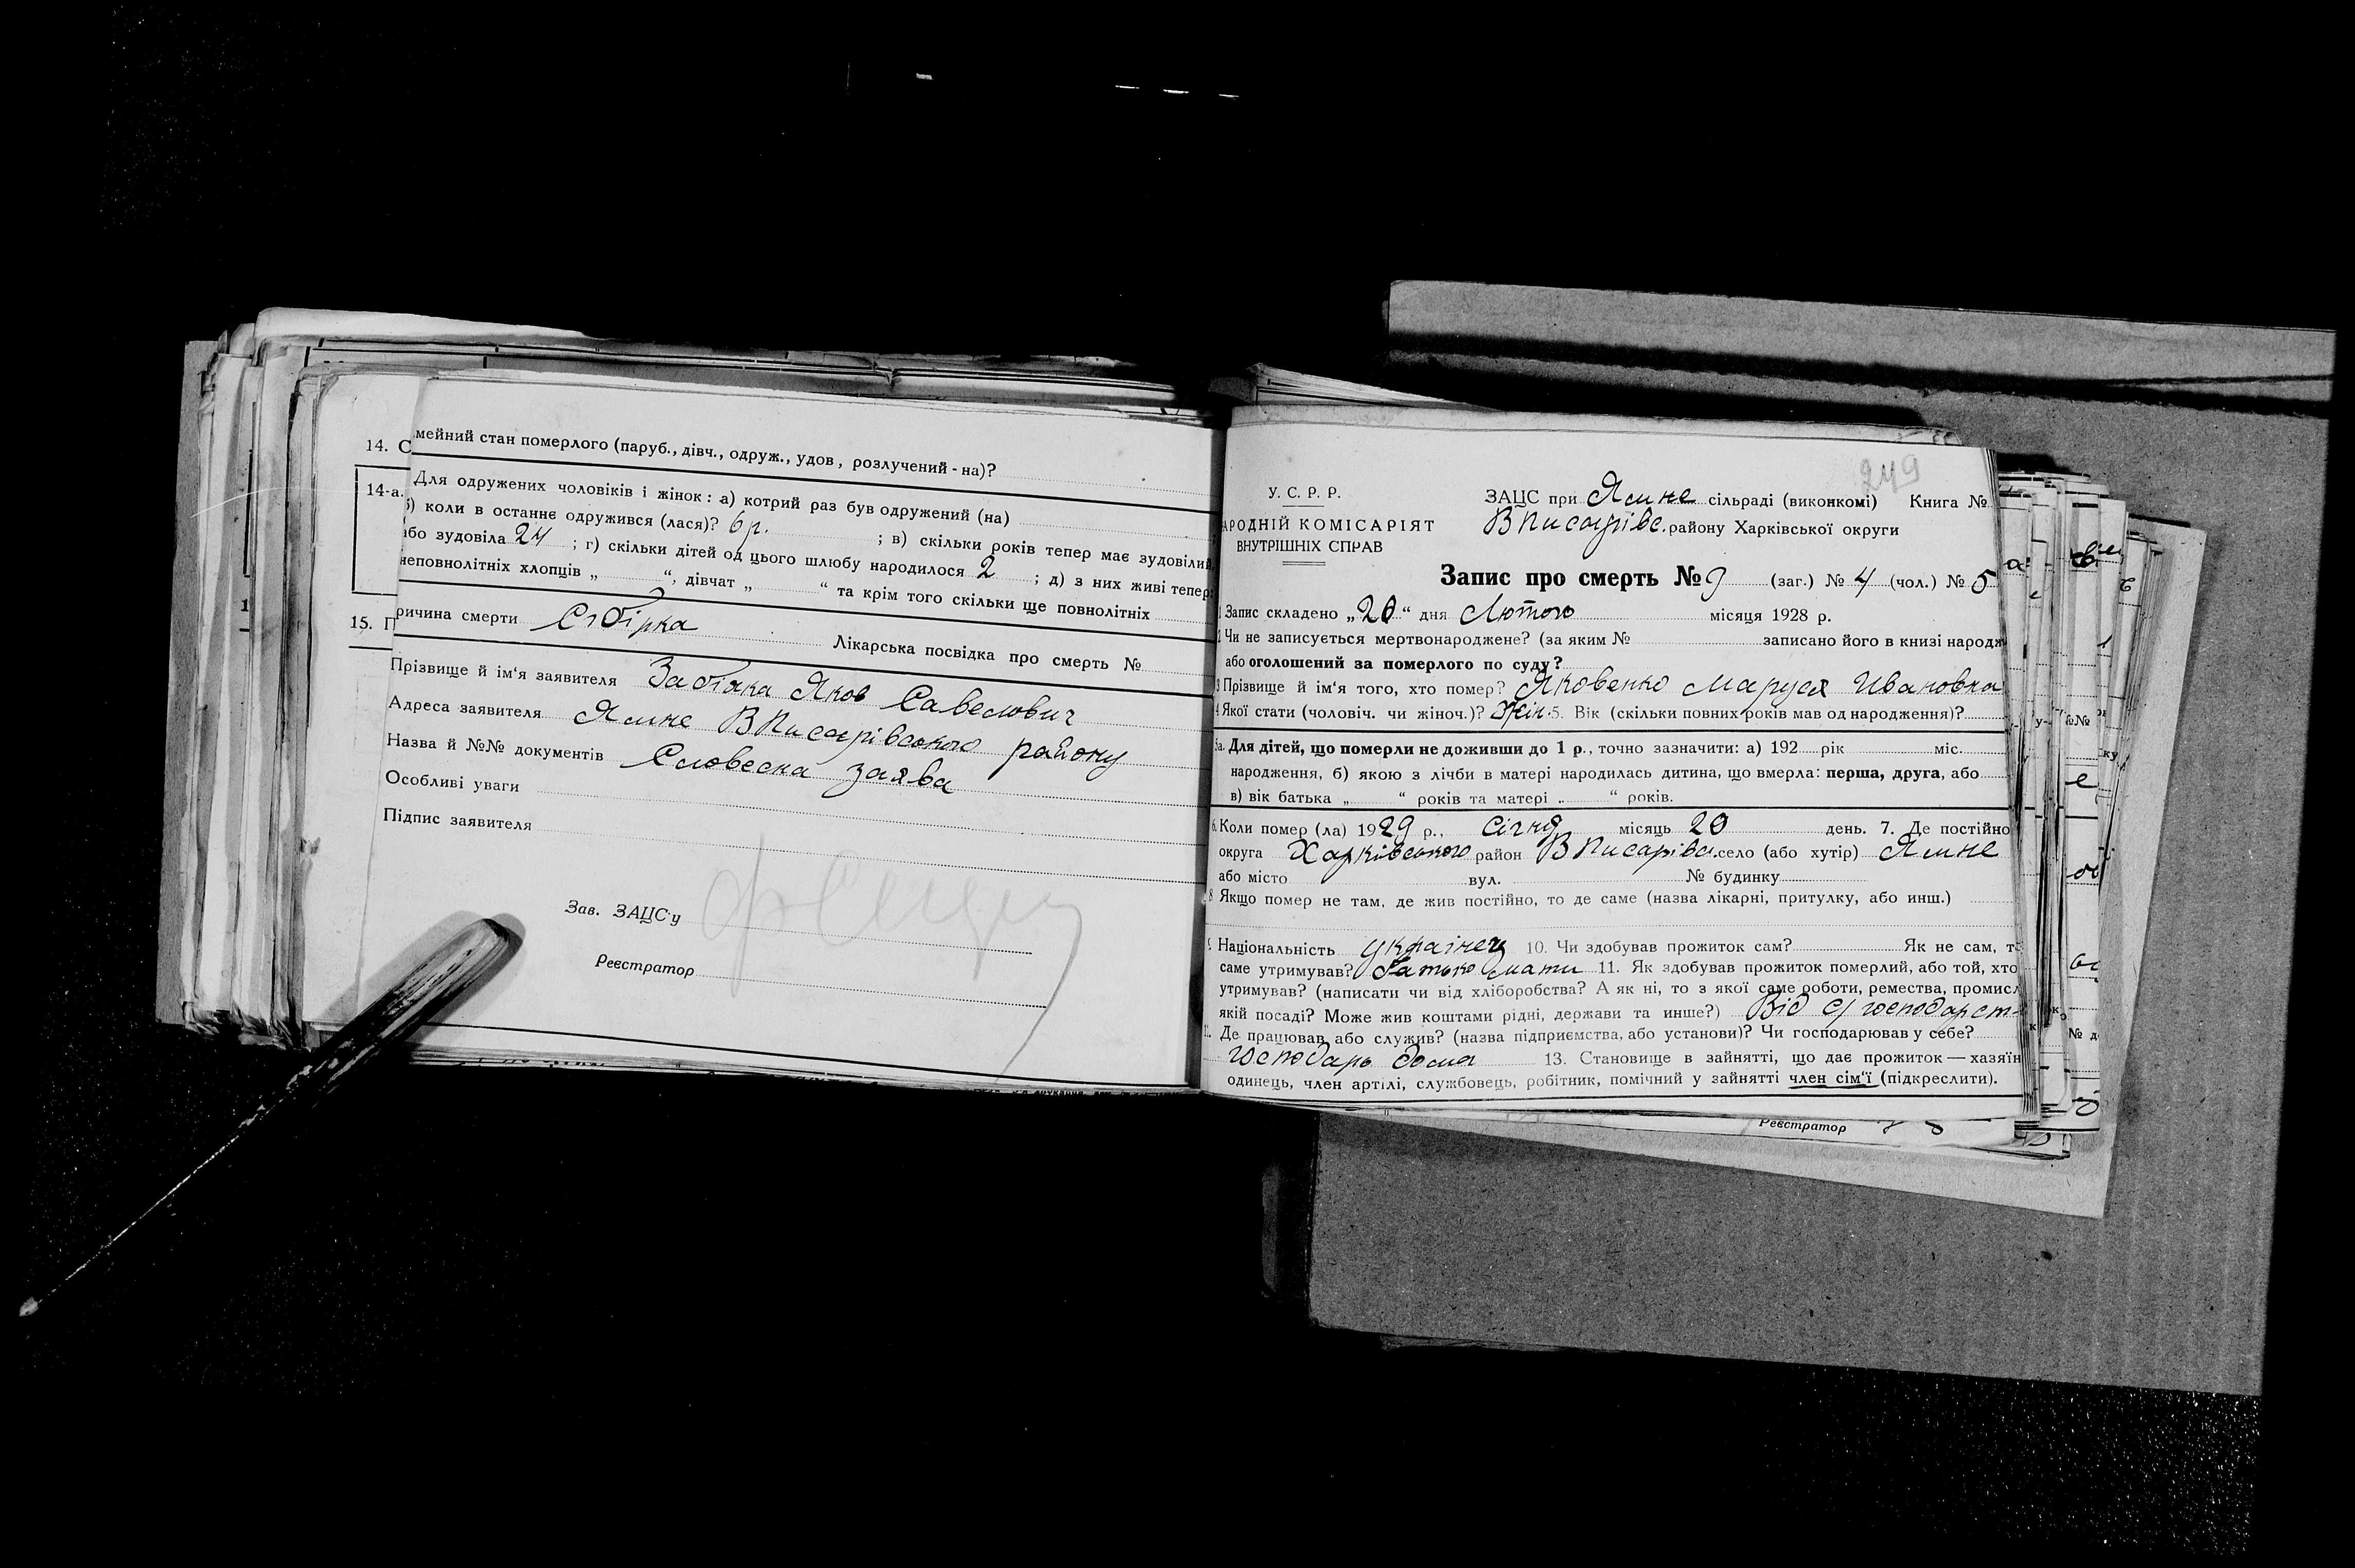 14. С мейний стан померлого (паруб., дівч., одруж., удов, розлучений-на)?
14-а. Для одружених чоловіків і жінок: а) котрий раз був одружений (на)
б) коли в останнє одружився (лася)? 6 р. ; в) скільки років тепер має зудовілий,
або зудовіла 24 ; г) скільки дітей од цього шлюбу народилося 2 ; д) з них живі тепер:
неповнолітніх хлопців „ “, дівчат „ “ та крім того скільки ще повнолітніх
15. Причина смерти Лікарська посвідка про смерть №
Прізвище й ім‘я заявителя Забіяка Яков Савелович
Адреса заявителя Ямне ВПисарівського району
Назва й №№ документів Словесна заява
Особливі уваги
Підпис заявителя
Зав. ЗАЦС‘у
Реєстратор
249
У. С. Р. Р.
АРОДНІЙ КОМІСАРІЯТ
ВНУТРІШНІХ СПРАВ
ЗАЦС при Ямне сільраді (виконкомі) Книга №
ВПисарівс. району Харківської округи
Запис про смерть № 9 (заг.) № 4 (чол.) № 5
1 Запис складено „20“ дня Лютого місяця 1928 р.
2 Чи не записується мертвонароджене? (за яким № записано його в книзі народж
або оголошений за померлого по суду?
3 Прізвище й ім‘я того, хто помер? Яковенко Маруся Ивановна
4 Якої стати (чоловіч. чи жіноч.)? Жін. 5. Вік (скільки повних років мав од народження)?
5а. Для дітей, що померли не доживши до 1 р., точно зазначити: а) 192 рік міс.
народження, б) якою з лічби в матері народилась дитина, що вмерла: перша, друга, або
в) вік батька „ “ років та матері „ “ років.
6. Коли помер (ла) 1929 р., січня місяць 20 день. 7. Де постійно
округа Харківського район ВПисарівс. село (або хутір) Ямне
або місто вул. № будинку
8 Якщо помер не там, де жив постійно, то де саме (назва лікарні, притулку, або инш.)
9. Національність українец 10. Чи здобував прожиток сам? Як не сам, то
саме утримував? батько мати 11. Як здобував прожиток померлий, або той, хто
утримував? (написати чи від хліборобства? А як ні, то з якої саме роботи, ремества, промисл
якій посаді? Може жив коштами рідні, держави та инше?) Від с/господарст-
12. Де працював або служив? (назва підприємства, або установи)? Чи господарював у себе?
господарь дома 13. Становище в зайнятті, що дає прожиток — хазяїн
одинець, член артілі, службовець, робітник, помічний у зайнятті член сім‘ї (підкреслити).
Реєстратор